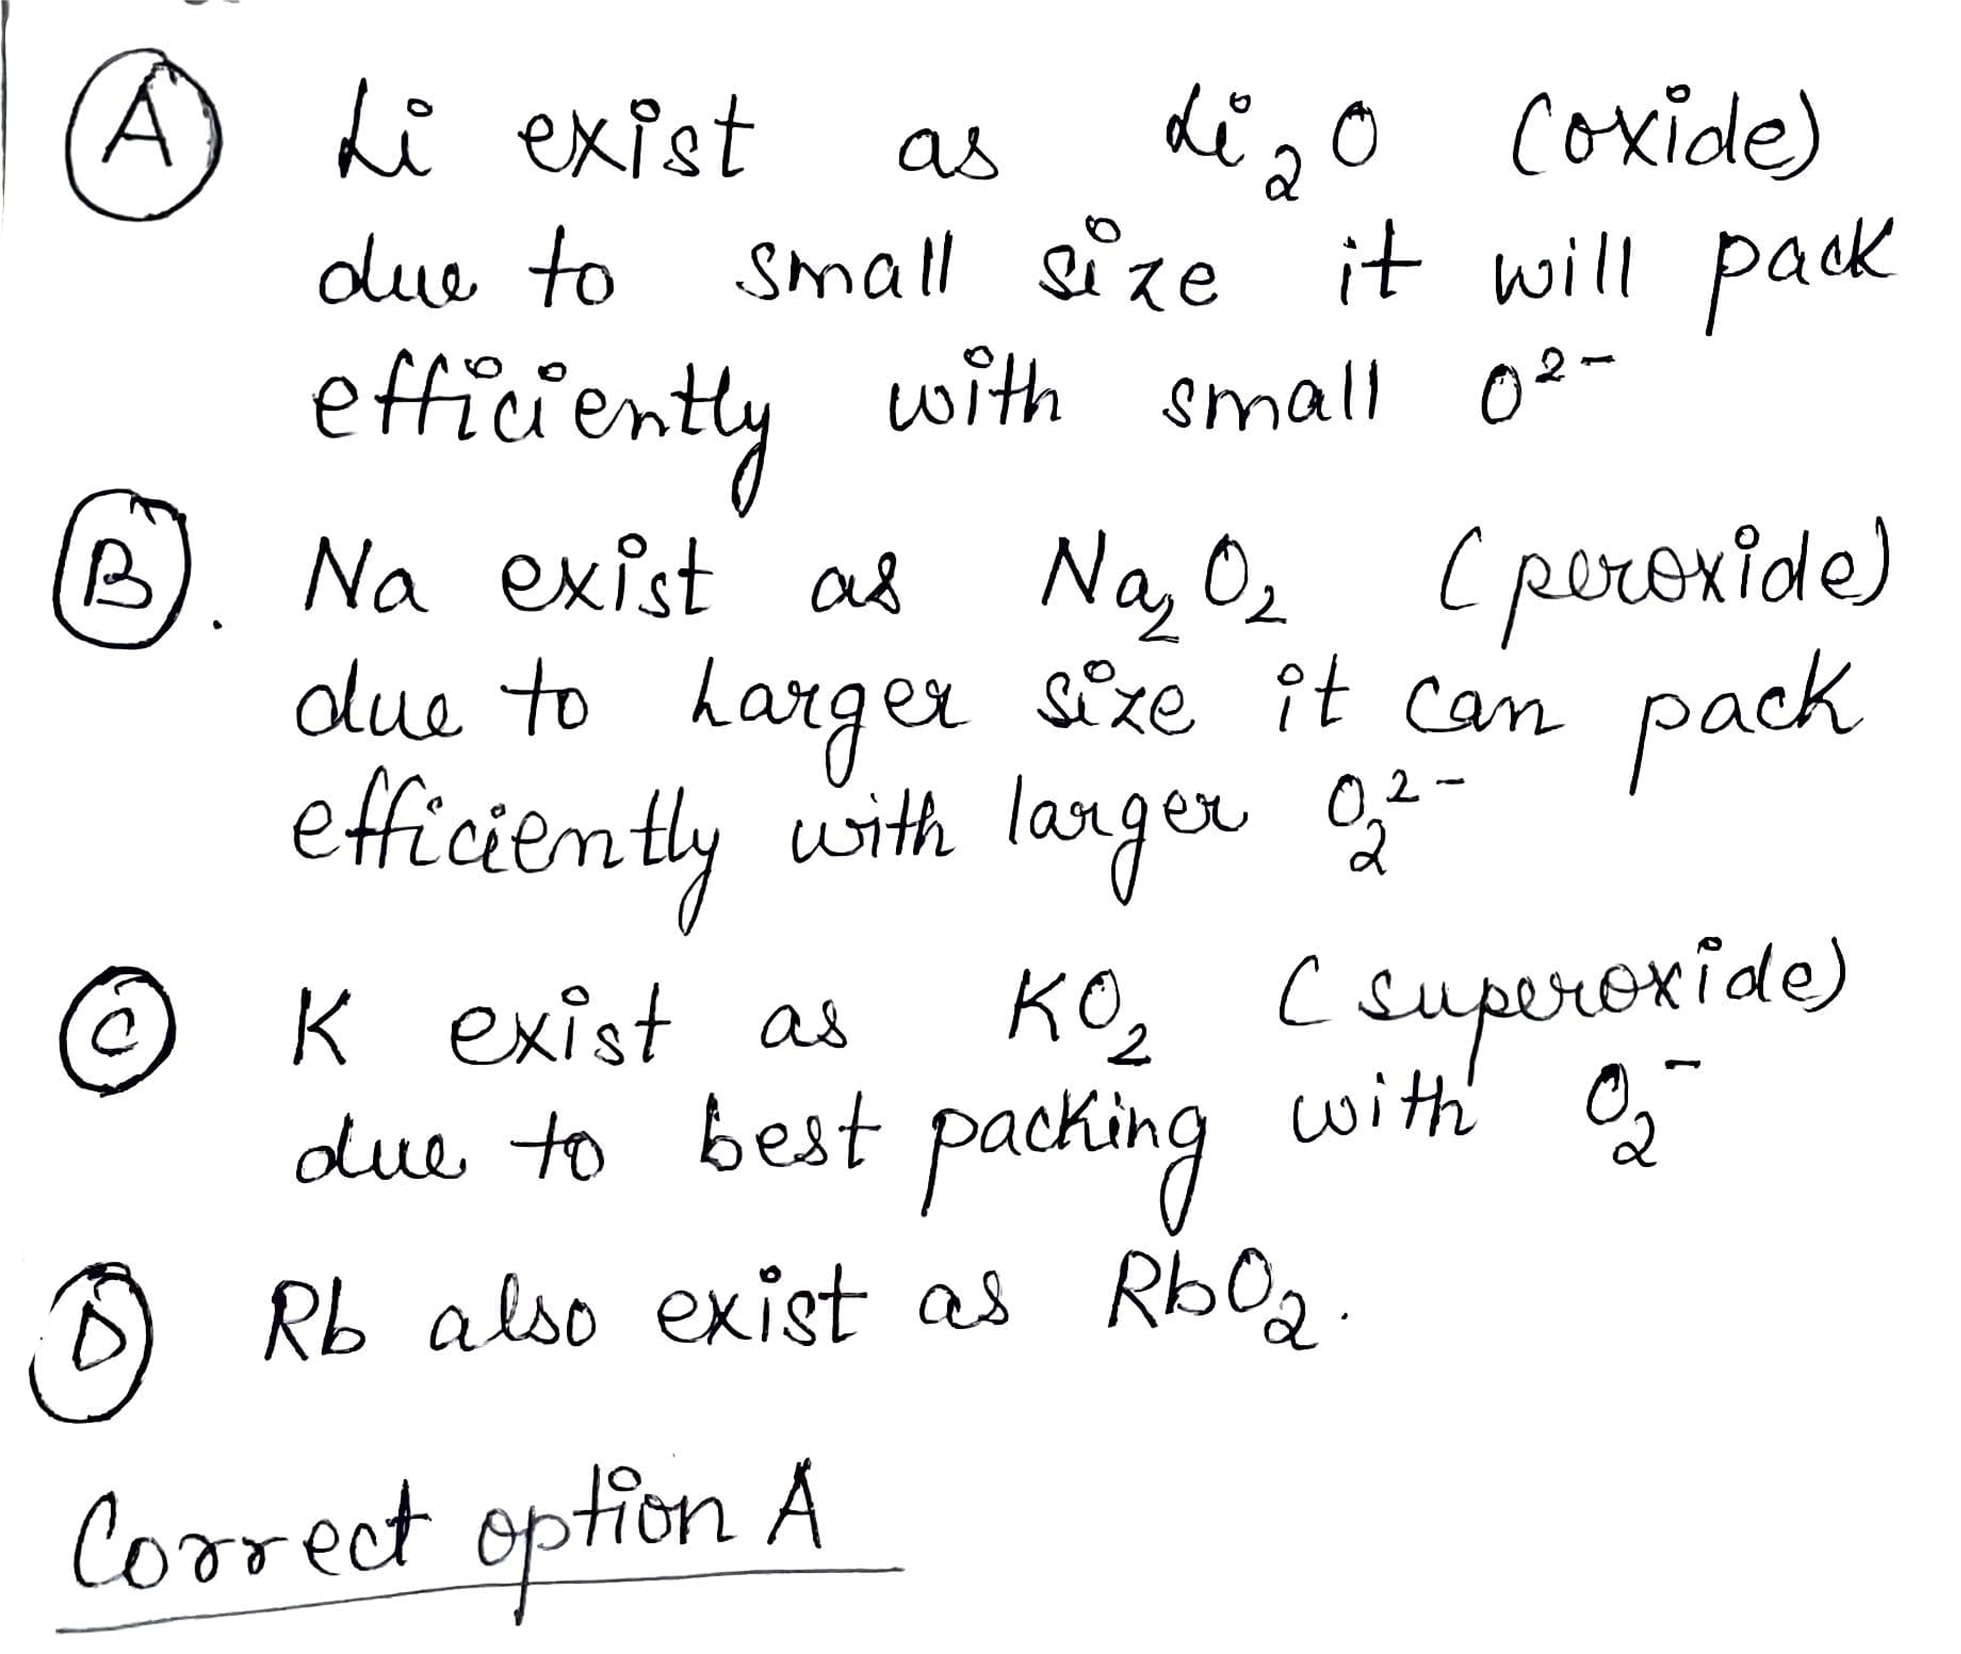 A Li exist as Li2O (oxide)
due to small size it will pack
efficiently with small O2-
B. Na exist as Na2O2 (peroxide)
due to Larger size it can pack
efficiently with larger O2 2-
C K exist as KO2 (superoxide)
due to best packing with O2-
D Rb also exist as RbO2.
Correct option A